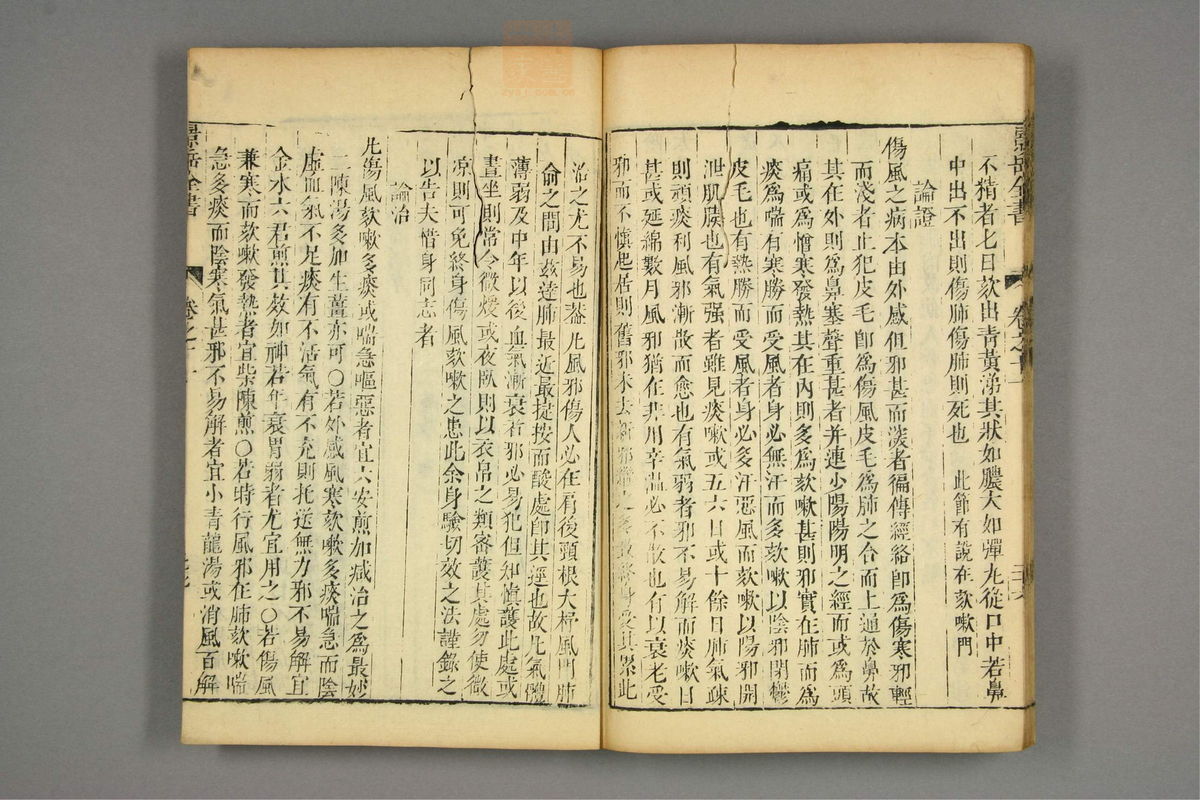 景岳全書
卷之十一
不精者七日欬出青黃涕其狀如膿大如彈丸從口中若鼻
中出不出則傷肺傷肺則死也 此節有說在欬嗽門
論證
傷風之病本由外感但邪甚而深者徧傳經絡卽爲傷寒邪輕
而淺者止犯皮毛卽爲傷風皮毛爲肺之合而上通於鼻故
其在外則爲鼻塞聲重甚者并連少陽陽明之經而或爲頭
痛或爲憎寒發熱其在內則多爲欬嗽甚則邪實在肺而爲
痰爲喘有寒勝而受風者身必無汗而多欬嗽以陰邪閉鬱
皮毛也有熱勝而受風者身必多汗惡風而欬嗽以陽邪開
泄肌腠也有氣强者雖見痰嗽或五六日或十餘日肺氣疎
則頑痰利風邪漸散而愈也有氣弱者邪不易解而痰嗽日
甚或延綿數月風邪猶在非用辛溫必不散也有以衰老受
邪而不慎起居則舊邪未去新邪繼之多致終身受其累此
治之尤不易也蓋凡風邪傷人必在肩後頸根大杼風門肺
俞之間由兹達肺最近最捷按而酸處卽其逕也故凡氣體
薄弱及中年以後血氣漸衰者邪必易犯但知慎護此處或
晝坐則常令微煖或夜臥則以衣帛之類審護其處勿使微
凉則可免終身傷風欬嗽之患此余身驗切效之法謹錄之
以告夫惜身同志者
論治
凡傷風欬嗽多痰或喘急嘔惡者宜六安煎加減治之爲最妙
二陳湯多加生薑亦可○若外感風寒欬嗽多痰喘急而陰
虛血氣不足痰有不活氣有不充則托送無力邪不易解宜
金水六君煎其效如神若年衰胃弱者尤宜用之○若傷風
兼寒而欬嗽發熱者宜柴陳煎○若時行風邪在肺欬嗽喘
急多痰而陰寒氣甚邪不易解者宜小青龍湯或消風百解
景岳全書
卷之十一